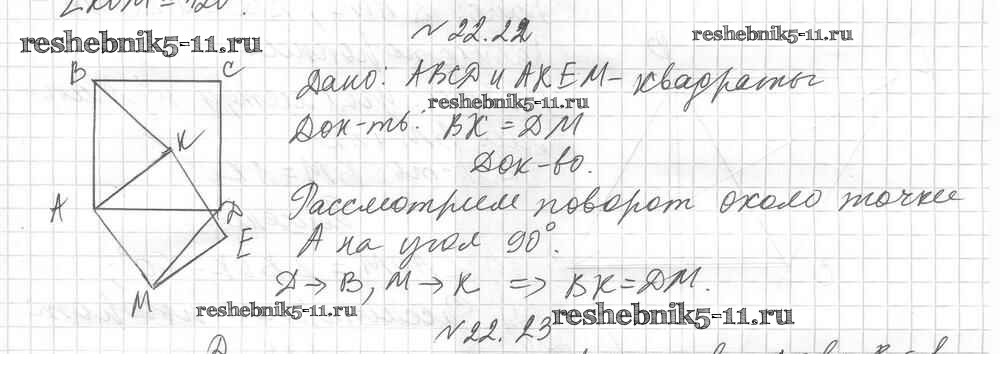 ∠KOM = 120°.
reshebnik5-11.ru
№ 22.22
reshebnik5-11.ru
B C
Дано: ABCD и AKEM - квадраты
reshebnik5-11.ru
K
Док-ть: BK = DM
Док-во.
A D
Рассмотрим поворот около точки
E
A на угол 90°.
M
D → B, M → K ⇒ BK = DM.
reshebnik5-11.ru
№ 22.23
reshebnik5-11.ru